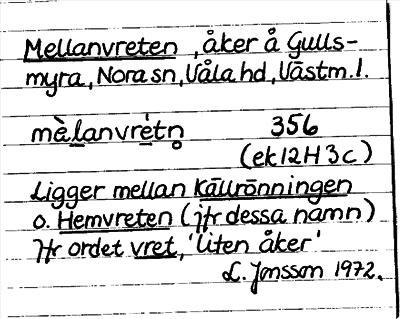 Mellanvreten, åker å Gulls-
myra, Nora sn, Våla hd, Västm. l.
mè̱lanvré̱tn̥ 356
(ek 12H 3c)
Ligger mellan Källrönningen
o. Hemvreten (jfr dessa namn)
Jfr ordet vret, 'liten åker'
L. Jonsson 1972.